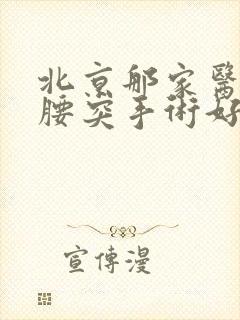 北京那家醫
腰突手術好
宣傳漫